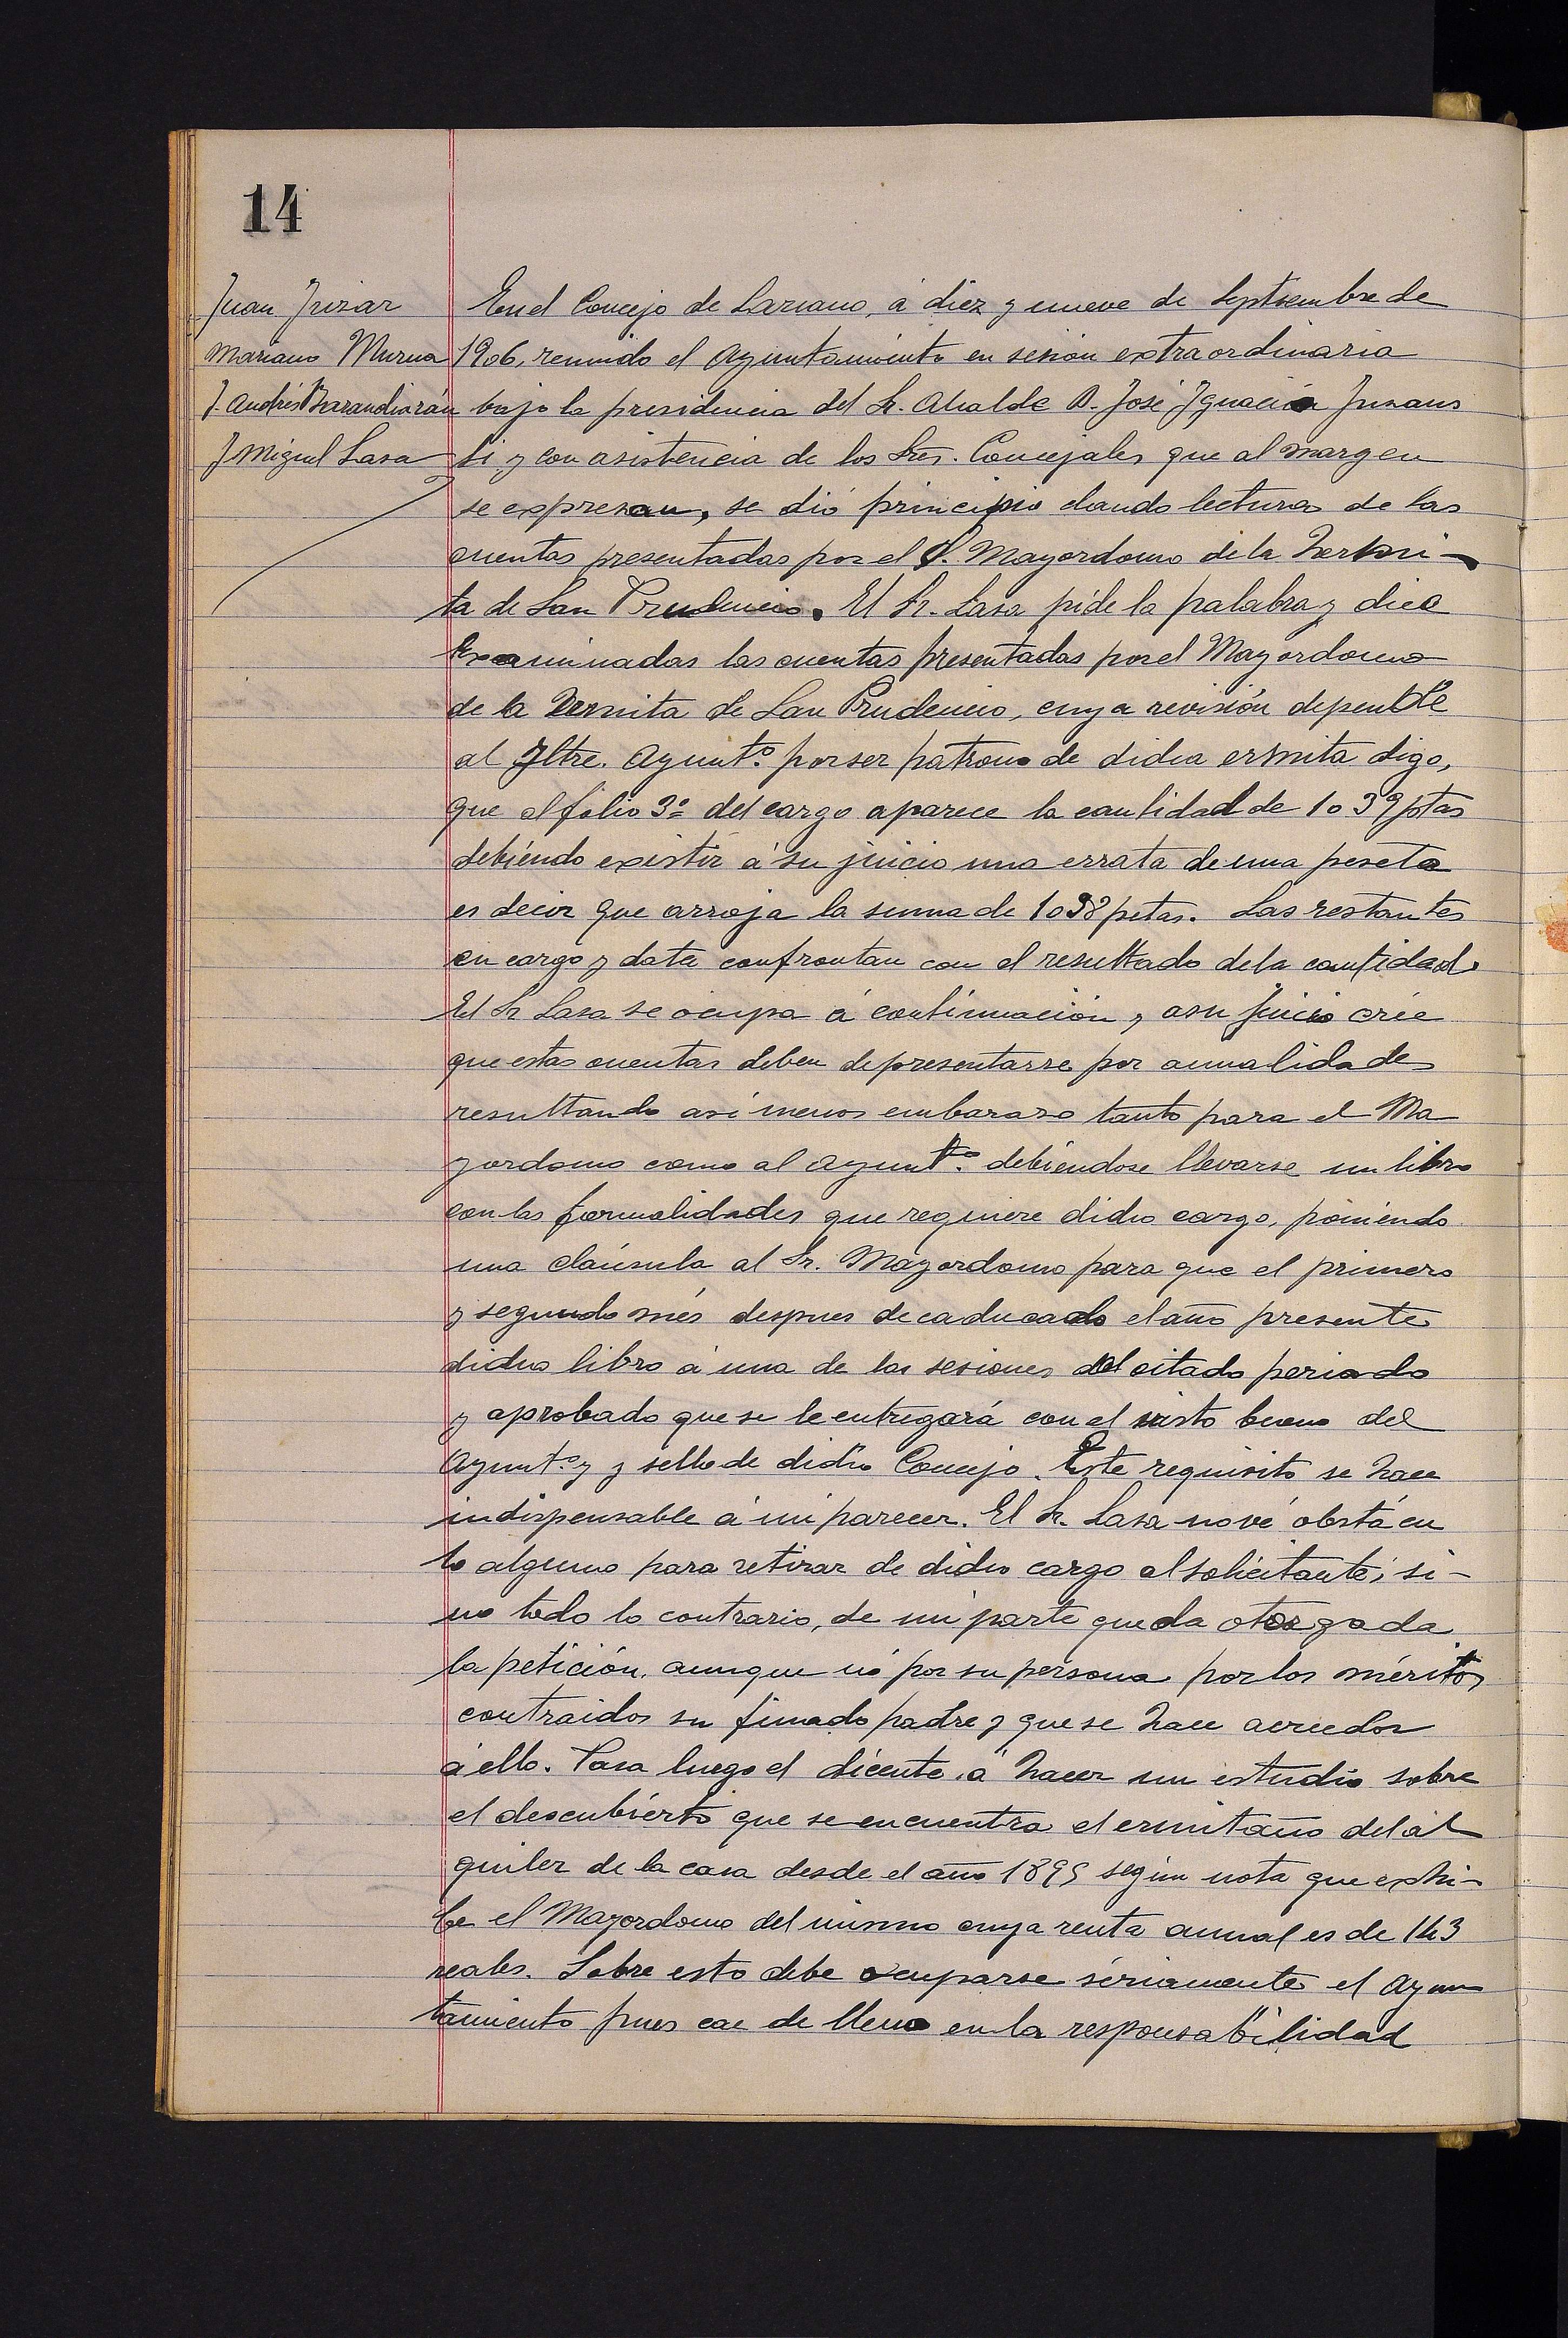 14
Juan Irizar
Mariano Murua
J. Andrés Barandiarán
J Miguel Lasa
En el Concejo de Lazcano, á diez y nueve de Septiembre de
1906, reunido el Ayuntamiento en sesión extraordinaria
bajo la presidencia del Sr. Alcalde D. José Ignacio
y con asistencia de los Sres. Concejales que al margen
se expresan, se dió principio dando lectura de las
cuentas presentadas por el S. Mayordomo de la Hermi-
ta de San Prudencio. El Sr. Lasa pide la palabra y dice
Examinadas las cuentas presentadas por el Mayordomo
de la Ermita de San Prudencio, cuya revisión depende
al Iltre. Ayuntº. por ser patrono de dicha ermita digo,
que al folio 3º del cargo aparece la cantidad de 1039 ptas
debiendo existir á su juicio una errata de una peseta
es decir que arroja la suma de 1038 petas. Las restantes
en cargo y data confrontan con el resultado de la cantidad.
El Sr Lasa se ocupa á continuación, y asu juicio crée
que estas cuentas deben depresentarse por anualidades
resultando así menos embarazo tanto para el Ma
yordomo como al Ayuntº. debiéndose llevarse un libro
con las formalidades que requiere dicho cargo, poniendo
una cláusula al Sr. Mayordomo para que el primero
y segundo més despues de caducado el año presente
dicho libro á una de las sesiones del citado periodo
y aprobado que se le entregará con el visto bueno del
Ayuntº. y y sello de dicho Concejo. Este requisito se hace
indispensable á mi parecer. El Sr. Lasa no vé obstácu
lo alguno para retirar de dicho cargo al solicitante, si-
no todo lo contrario, de mi parte queda otorgada
la petición, aunque nó por su persona por los méritos
contraidos su finado padre y que se hace acreedor
á ello. Pasa luego el dicente á hacer un estudio sobre
el descubierto que se encuentra el ermitaño del al
quiler de la casa desde el año 1895 según nota que exhi-
be el Mayordomo del mismo cuya renta anual es de 143
reales. Sobre esto debe ocuparse sériamente el Ayun
tamiento pues cae de lleno en la responsabilidad